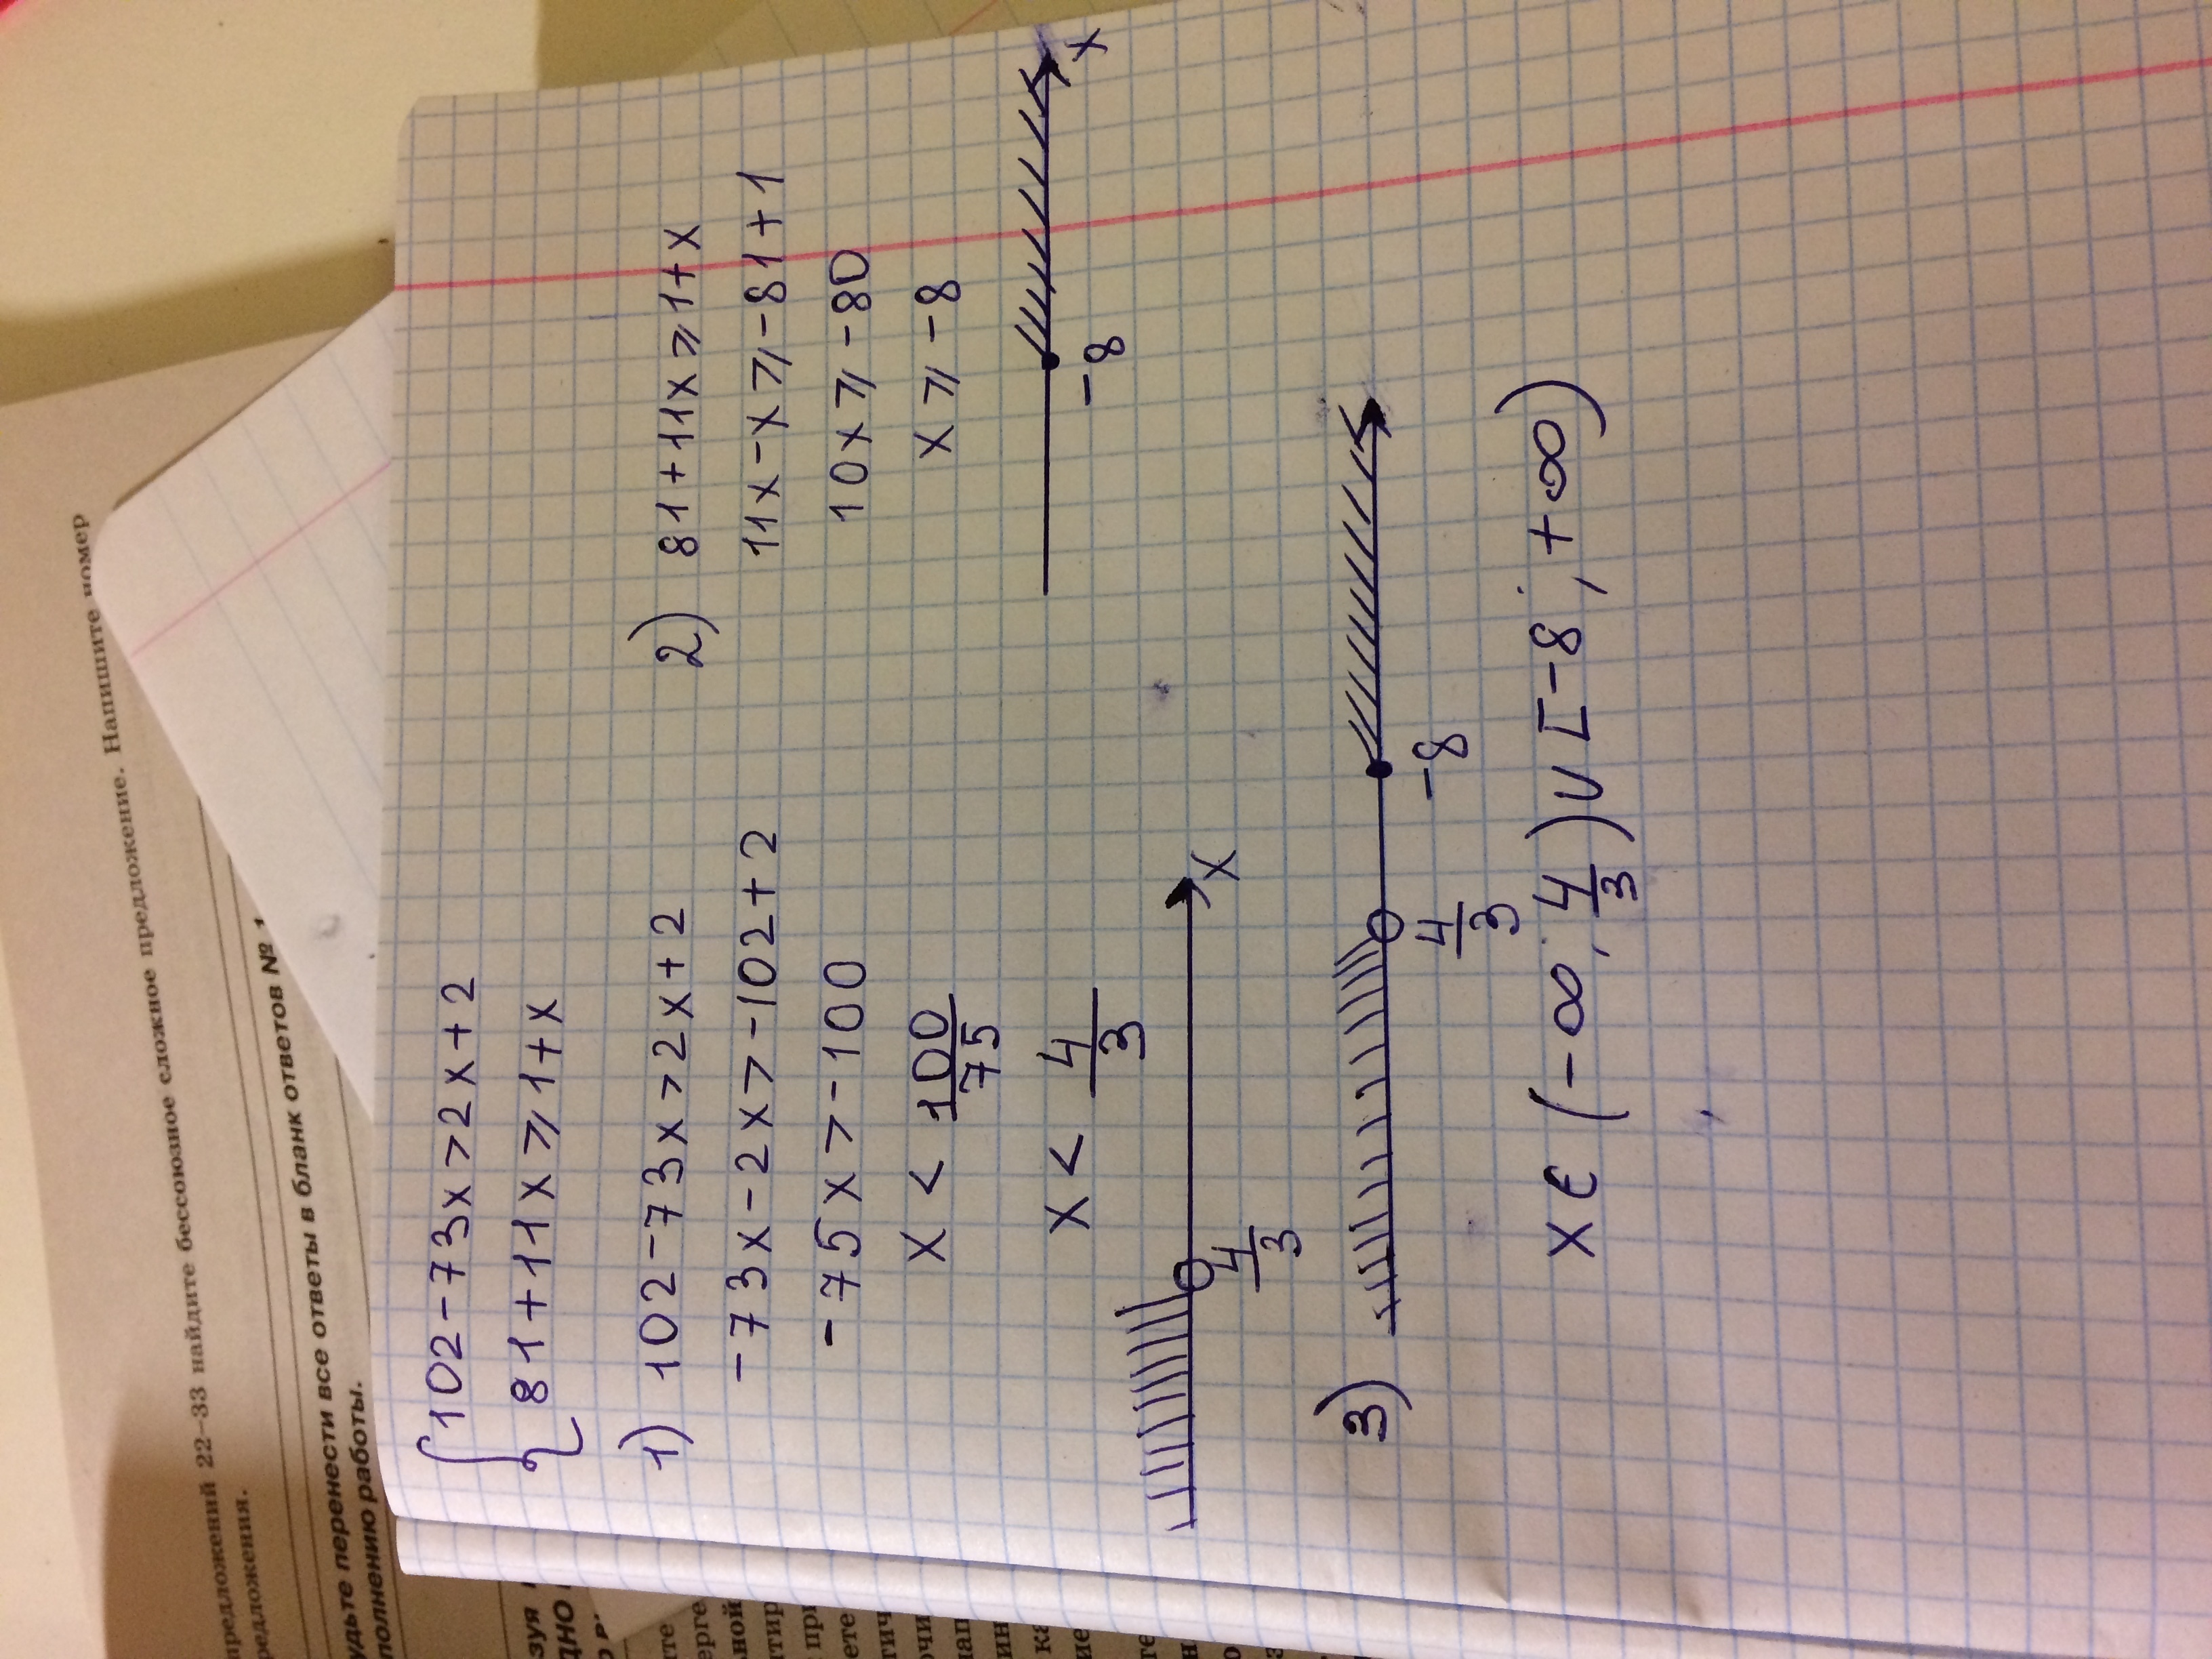 предложений 22–33 найдите бессоюзное сложное предложение. Напишите номер
предложения.
удьте перенести все ответы в бланк ответов № 1
полнению работы.
{ 102-73x>2x+2
81+11x⩾1+x
1) 102-73x>2x+2
-73x-2x>-102+2
-75x>-100
x<100/75
x<4/3
4/3 x
2) 81+11x⩾1+x
11x-x⩾-81+1
10x⩾-80
x⩾-8
-8 x
3)
4/3 -8
x∈(-∞;4/3)∪[-8;+∞)